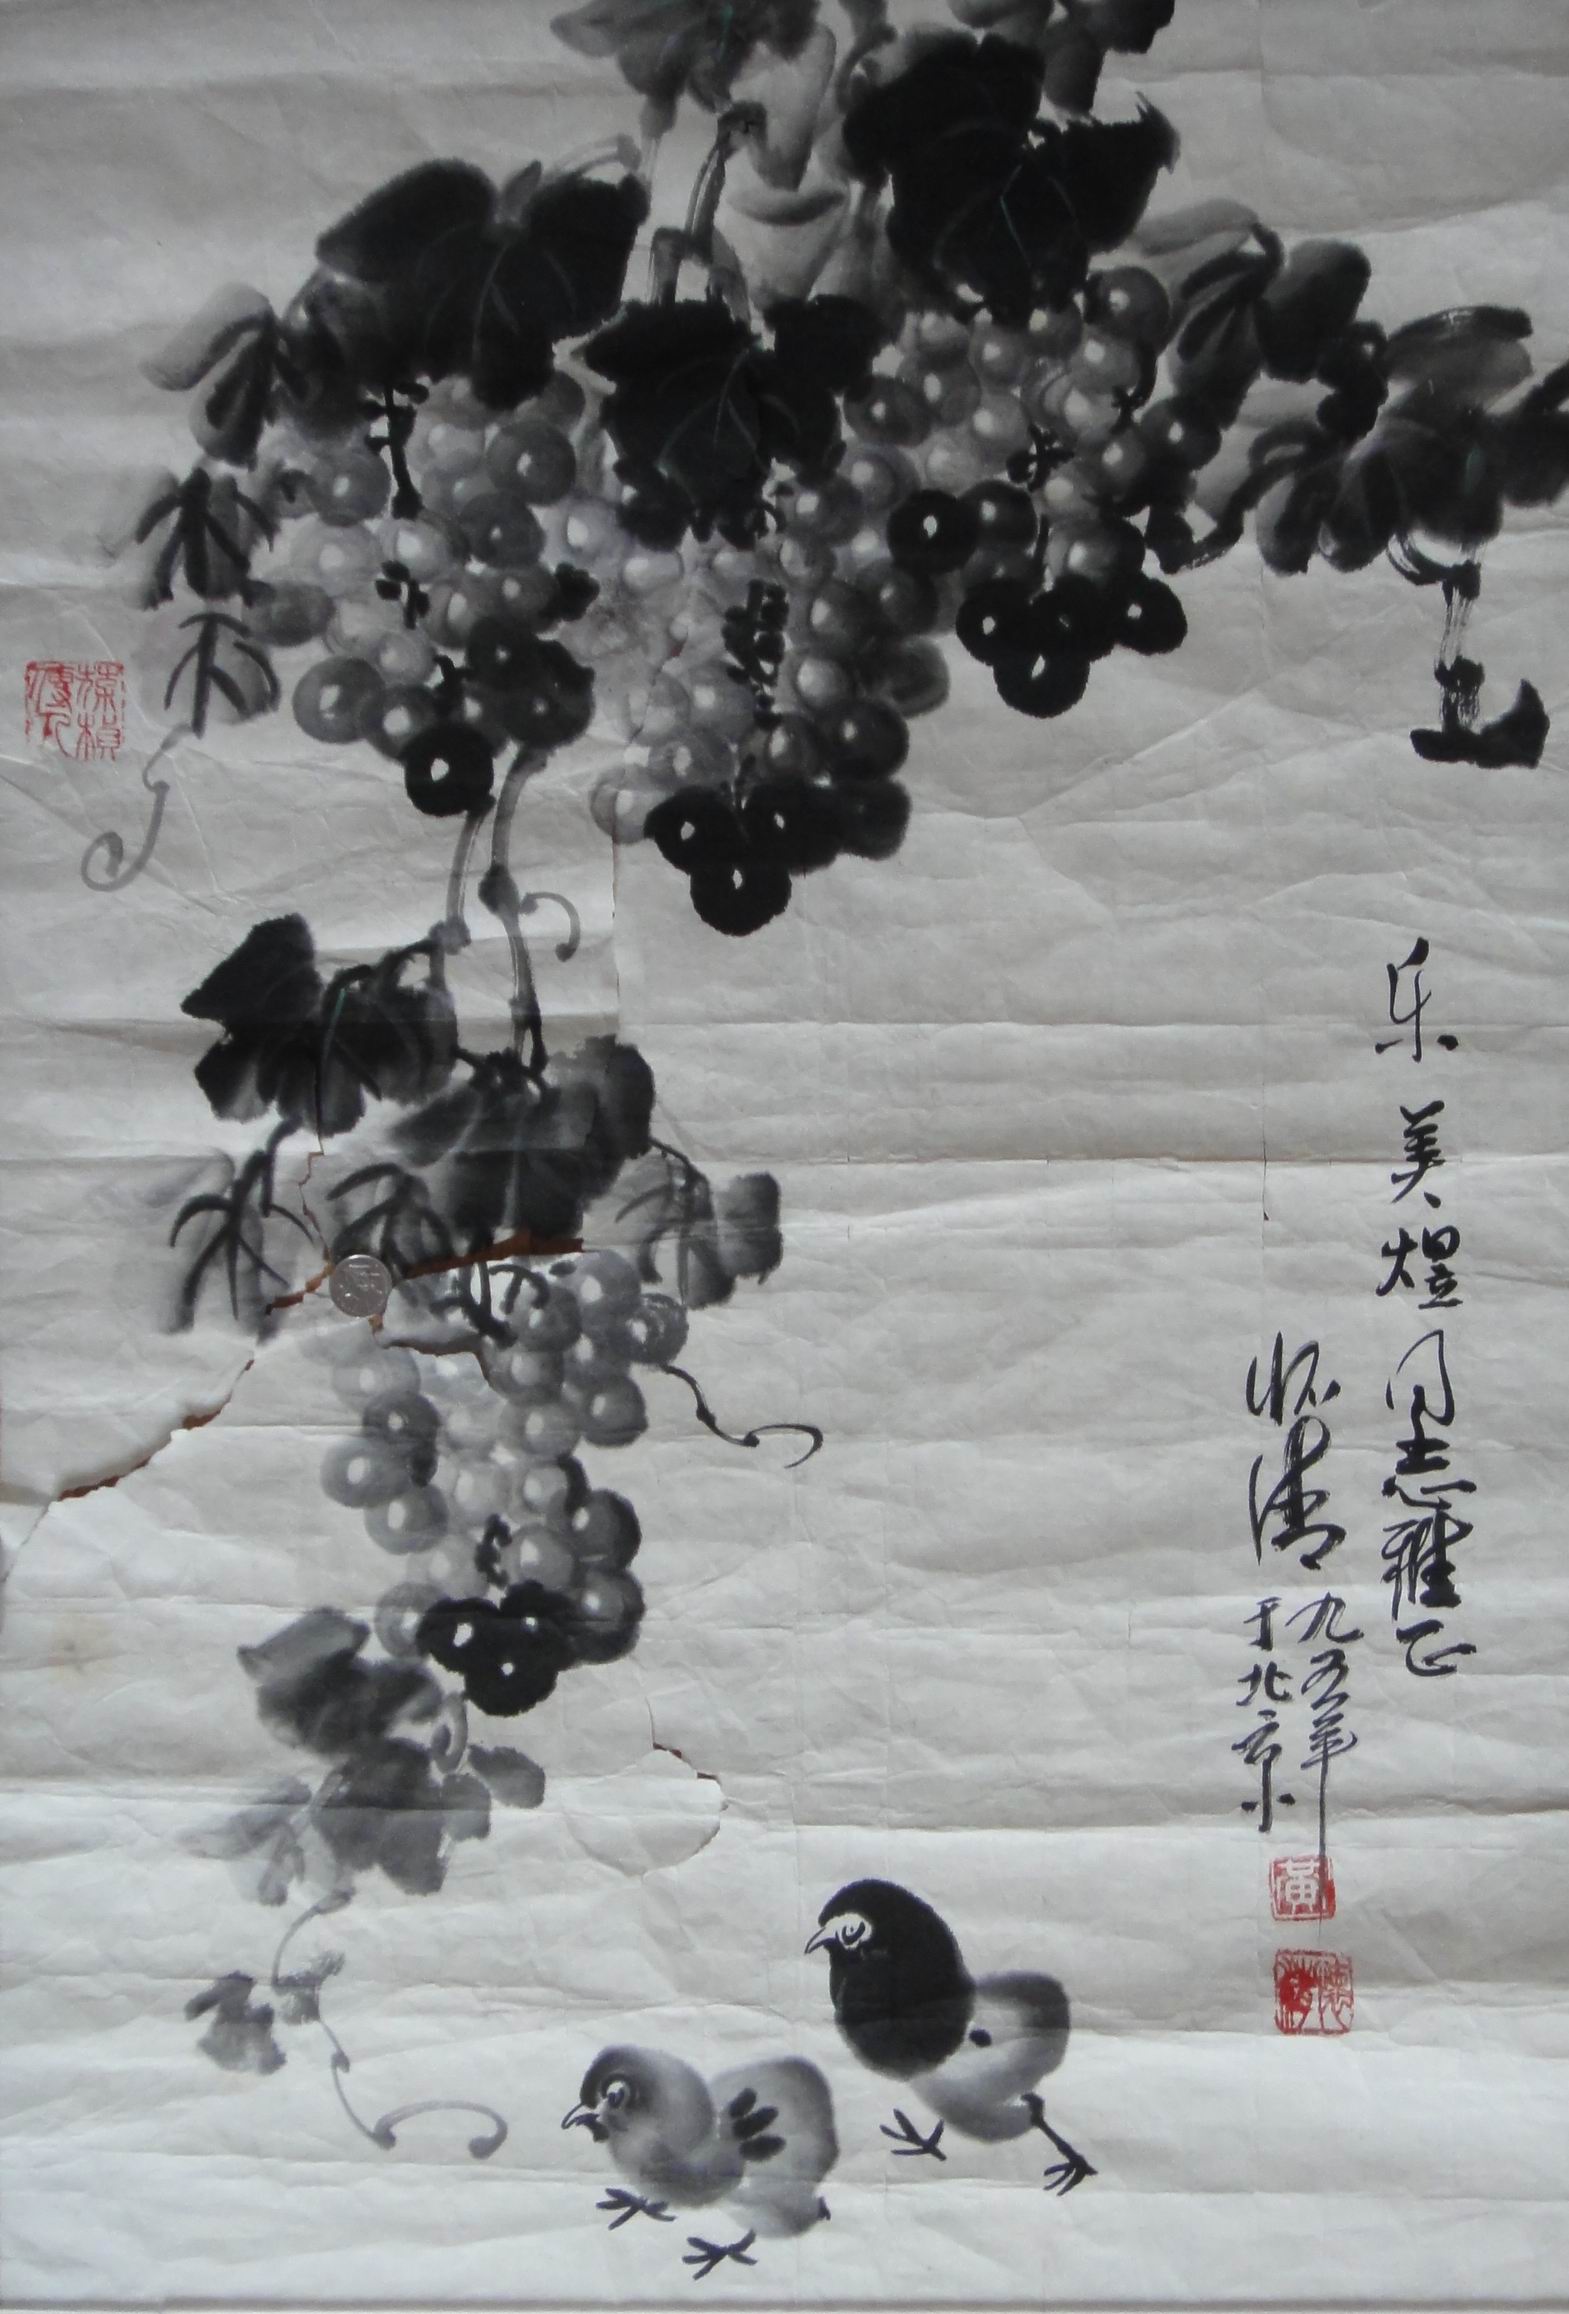 乐美煜同志雅正
怀清
九五年
于北京
黄